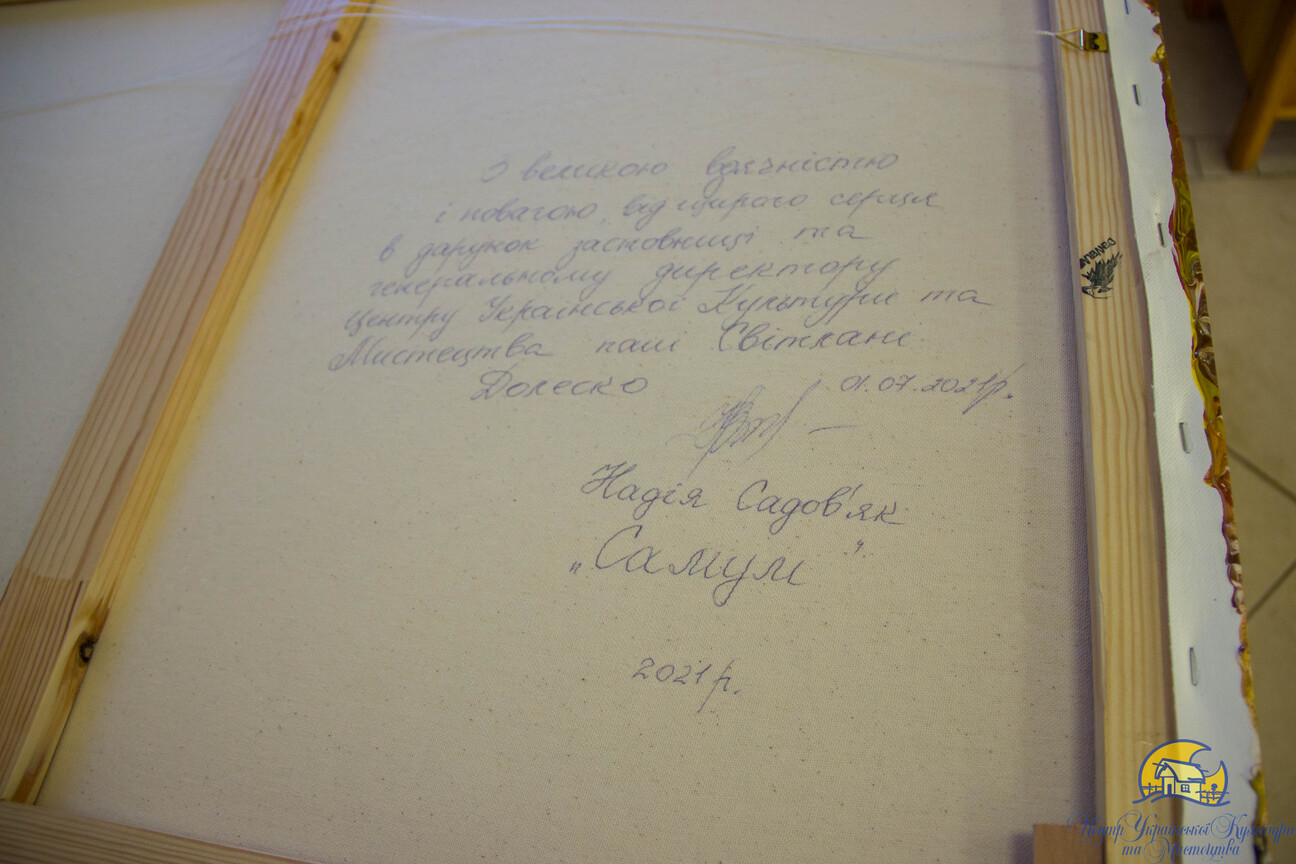 З великою вдячністю
і повагою, від щирого серця
в дарунок засновниці та
генеральному директору
Центру Української Культури та
Мистецтва пані Світлані
Долеско
01.07.2021р.
Надія Садов'як
„Самум"
2021р.
Центр Української Культури
та Мистецтва